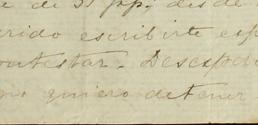 de 31 pp, desde
rido escribirte esp
ontestar. Descospedo
no quiero detener